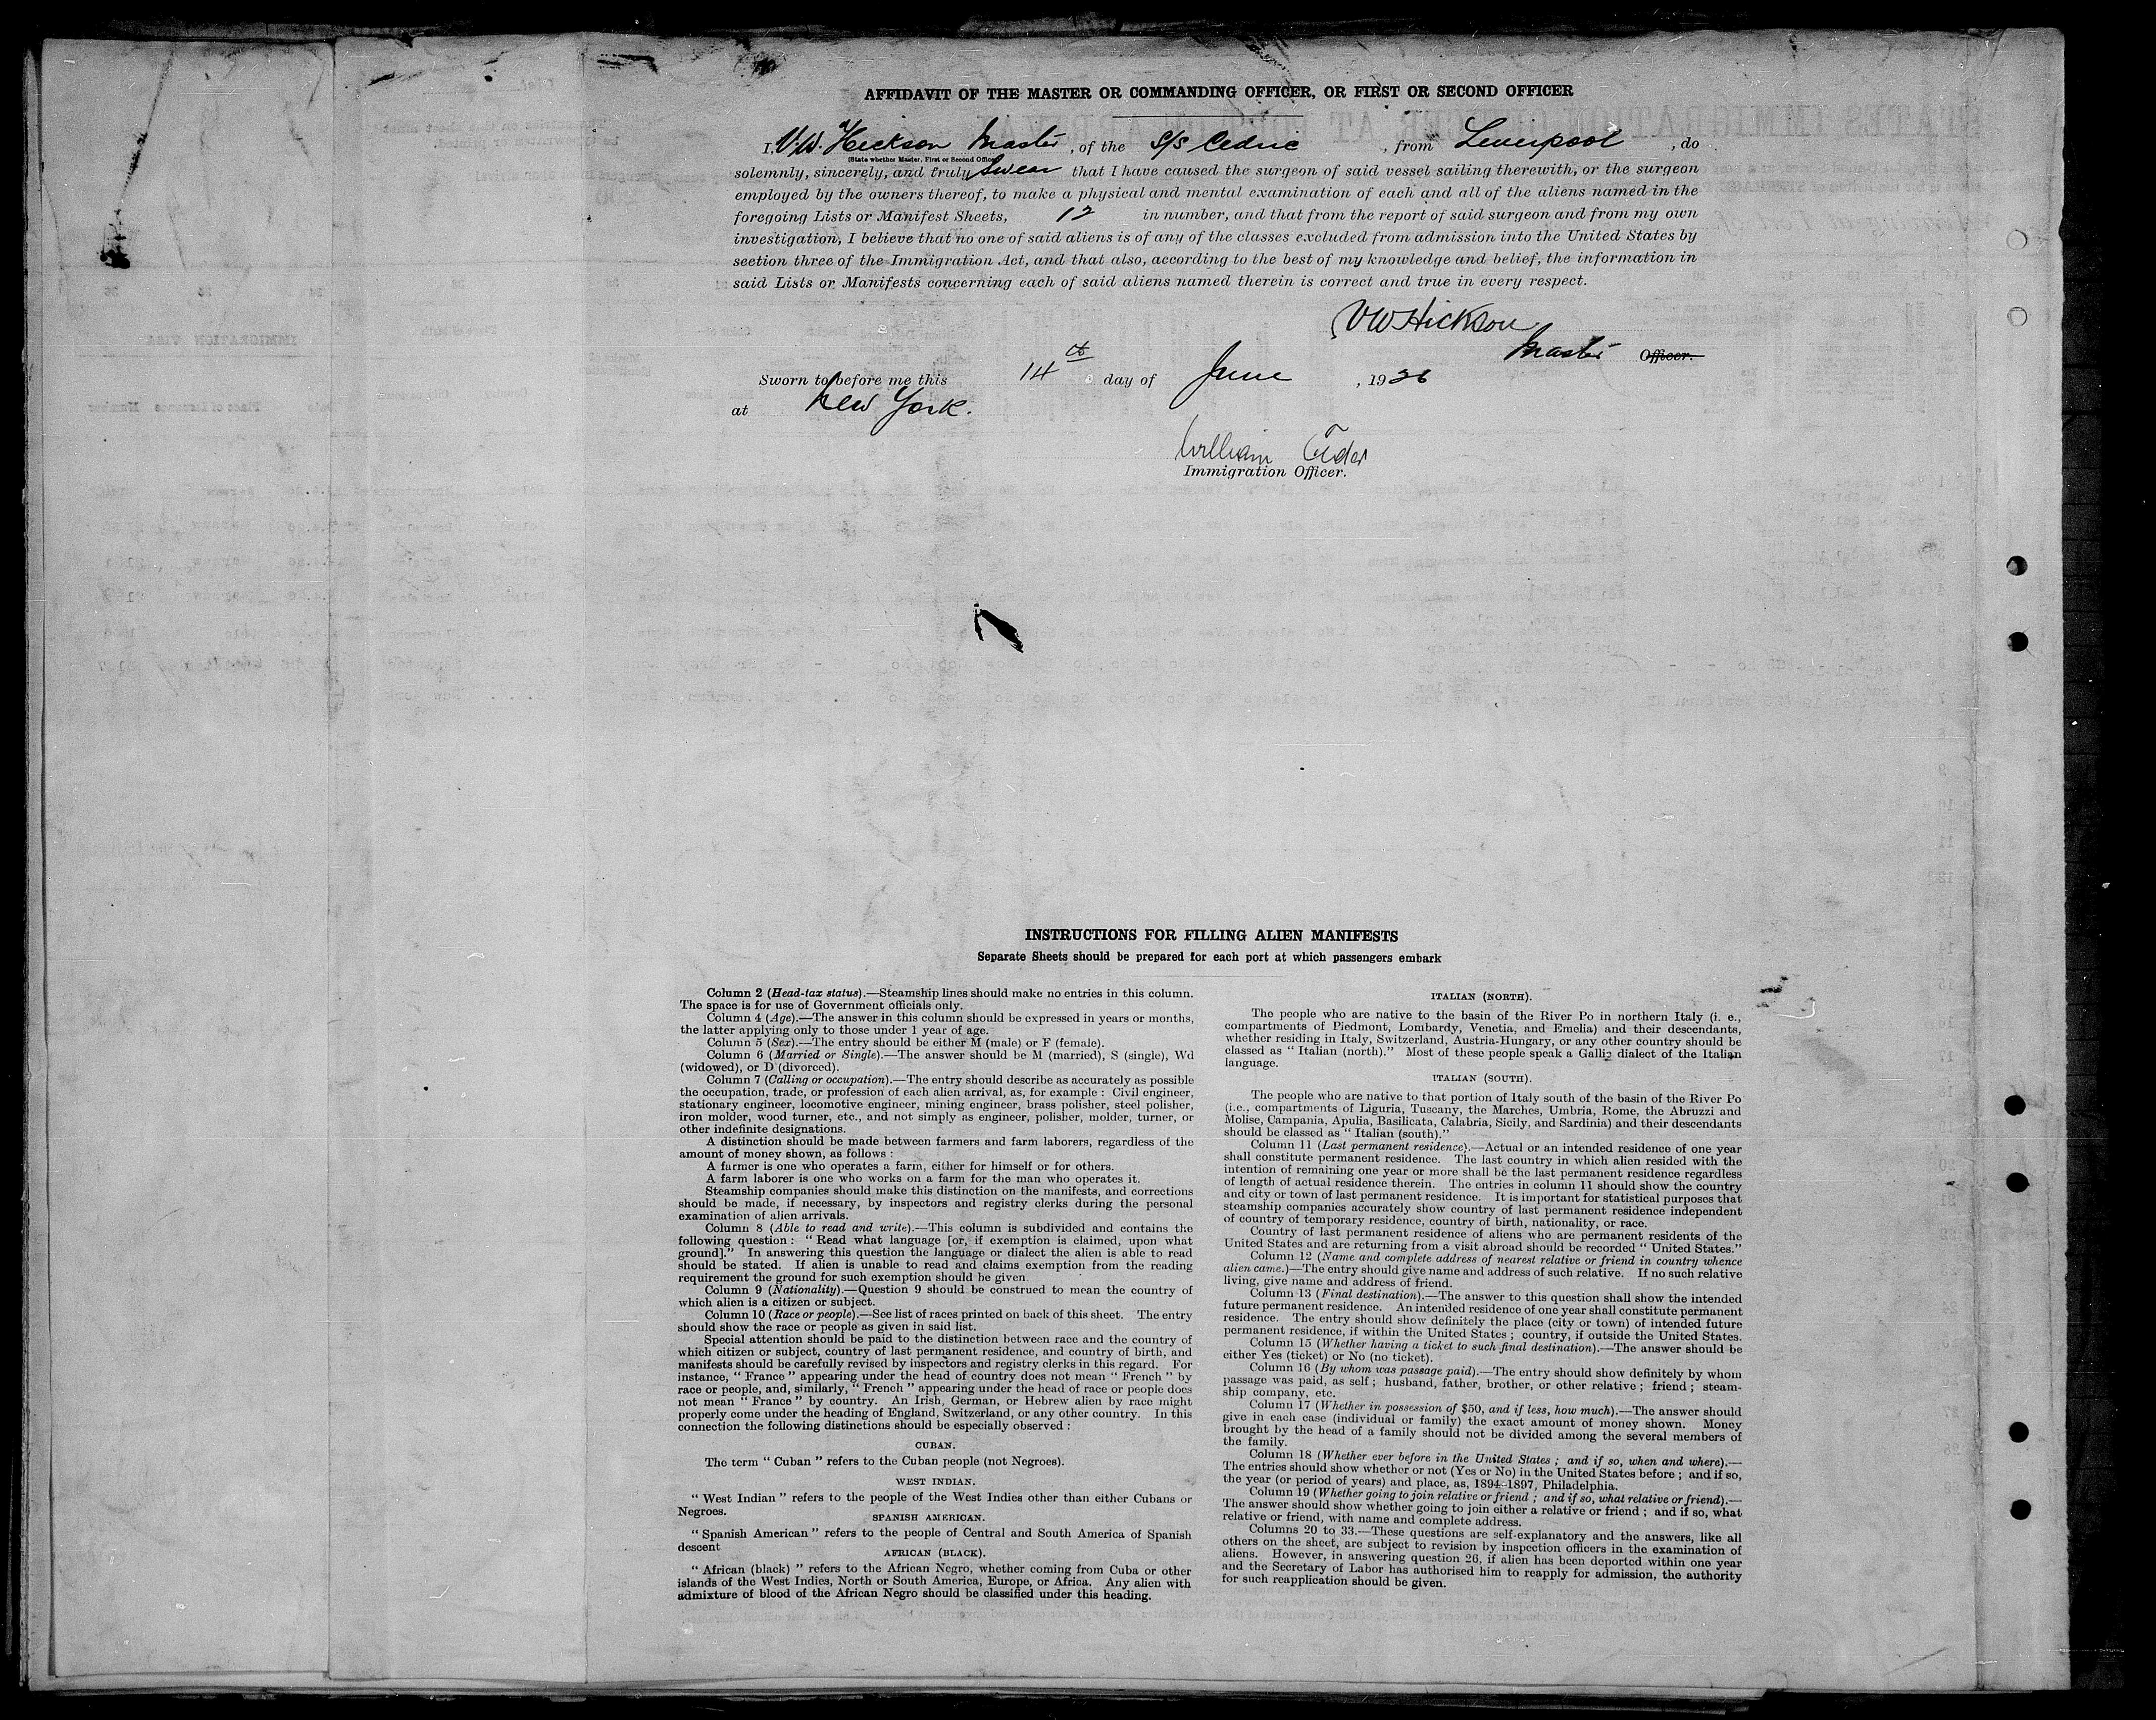 AFFIDAVIT OF THE MASTER OR COMMANDING OFFICER, OR FIRST OR SECOND OFFICER
I, V. W. Hickson Master, of the S/S Cedric, from Liverpool, do
(State whether Master, First or Second Officer)
solemnly, sincerely, and truly Swear that I have caused the surgeon of said vessel sailing therewith, or the surgeon
employed by the owners thereof, to make a physical and mental examination of each and all of the aliens named in the
foregoing Lists or Manifest Sheets, 12 in number, and that from the report of said surgeon and from my own
investigation, I believe that no one of said aliens is of any of the classes excluded from admission into the United States by
section three of the Immigration Act, and that also, according to the best of my knowledge and belief, the information in
said Lists or Manifests concerning each of said aliens named therein is correct and true in every respect.
VW Hickson
Master Officer.
Sworn to before me this 14th day of June, 1926
at New York.
William
Immigration Officer.
INSTRUCTIONS FOR FILLING ALIEN MANIFESTS
Separate Sheets should be prepared for each port at which passengers embark
Column 2 (Head-tax status).—Steamship lines should make no entries in this column.
The space is for use of Government officials only.
Column 4 (Age).—The answer in this column should be expressed in years or months,
the latter applying only to those under 1 year of age.
Column 5 (Sex).—The entry should be either M (male) or F (female).
Column 6 (Married or Single).—The answer should be M (married), S (single), Wd
(widowed), or D (divorced).
Column 7 (Calling or occupation).—The entry should describe as accurately as possible
the occupation, trade, or profession of each alien arrival, as, for example : Civil engineer,
stationary engineer, locomotive engineer, mining engineer, brass polisher, steel polisher,
iron molder, wood turner, etc., and not simply as engineer, polisher, molder, turner, or
other indefinite designations.
A distinction should be made between farmers and farm laborers, regardless of the
amount of money shown, as follows :
A farmer is one who operates a farm, either for himself or for others.
A farm laborer is one who works on a farm for the man who operates it.
Steamship companies should make this distinction on the manifests, and corrections
should be made, if necessary, by inspectors and registry clerks during the personal
examination of alien arrivals.
Column 8 (Able to read and write).—This column is subdivided and contains the
following question : “ Read what language [or, if exemption is claimed, upon what
ground].” In answering this question the language or dialect the alien is able to read
should be stated. If alien is unable to read and claims exemption from the reading
requirement the ground for such exemption should be given.
Column 9 (Nationality).—Question 9 should be construed to mean the country of
which alien is a citizen or subject.
Column 10 (Race or people).—See list of races printed on back of this sheet. The entry
should show the race or people as given in said list.
Special attention should be paid to the distinction between race and the country of
which citizen or subject, country of last permanent residence, and country of birth, and
manifests should be carefully revised by inspectors and registry clerks in this regard. For
instance, “ France ” appearing under the head of country does not mean “ French ” by
race or people, and, similarly, “ French ” appearing under the head of race or people does
not mean “ France ” by country. An Irish, German, or Hebrew alien by race might
properly come under the heading of England, Switzerland, or any other country. In this
connection the following distinctions should be especially observed :
CUBAN.
The term “ Cuban ” refers to the Cuban people (not Negroes).
WEST INDIAN.
“ West Indian ” refers to the people of the West Indies other than either Cubans or
Negroes.
SPANISH AMERICAN.
“ Spanish American ” refers to the people of Central and South America of Spanish
descent
AFRICAN (BLACK).
“ African (black) ” refers to the African Negro, whether coming from Cuba or other
islands of the West Indies, North or South America, Europe, or Africa. Any alien with
admixture of blood of the African Negro should be classified under this heading.
ITALIAN (NORTH).
The people who are native to the basin of the River Po in northern Italy (i. e.,
compartments of Piedmont, Lombardy, Venetia, and Emelia) and their descendants,
whether residing in Italy, Switzerland, Austria-Hungary, or any other country should be
classed as “ Italian (north).” Most of these people speak a Gallic dialect of the Italian
language.
ITALIAN (SOUTH).
The people who are native to that portion of Italy south of the basin of the River Po
(i.e., compartments of Liguria, Tuscany, the Marches, Umbria, Rome, the Abruzzi and
Molise, Campania, Apulia, Basilicata, Calabria, Sicily, and Sardinia) and their descendants
should be classed as “ Italian (south).”
Column 11 (Last permanent residence).—Actual or an intended residence of one year
shall constitute permanent residence. The last country in which alien resided with the
intention of remaining one year or more shall be the last permanent residence regardless
of length of actual residence therein. The entries in column 11 should show the country
and city or town of last permanent residence. It is important for statistical purposes that
steamship companies accurately show country of last permanent residence independent
of country of temporary residence, country of birth, nationality, or race.
Country of last permanent residence of aliens who are permanent residents of the
United States and are returning from a visit abroad should be recorded “ United States.”
Column 12 (Name and complete address of nearest relative or friend in country whence
alien came.)—The entry should give name and address of such relative. If no such relative
living, give name and address of friend.
Column 13 (Final destination).—The answer to this question shall show the intended
future permanent residence. An intended residence of one year shall constitute permanent
residence. The entry should show definitely the place (city or town) of intended future
permanent residence, if within the United States ; country, if outside the United States.
Column 15 (Whether having a ticket to such final destination).—The answer should be
either Yes (ticket) or No (no ticket).
Column 16 (By whom was passage paid).—The entry should show definitely by whom
passage was paid, as self ; husband, father, brother, or other relative ; friend ; steam-
ship company, etc.
Column 17 (Whether in possession of $50, and if less, how much).—The answer should
give in each case (individual or family) the exact amount of money shown. Money
brought by the head of a family should not be divided among the several members of
the family.
Column 18 (Whether ever before in the United States ; and if so, when and where).—
The entries should show whether or not (Yes or No) in the United States before ; and if so,
the year (or period of years) and place, as, 1894–1897, Philadelphia.
Column 19 (Whether going to join relative or friend ; and if so, what relative or friend).—
The answer should show whether going to join either a relative or friend ; and if so, what
relative or friend, with name and complete address.
Columns 20 to 33.—These questions are self-explanatory and the answers, like all
others on the sheet, are subject to revision by inspection officers in the examination of
aliens. However, in answering question 26, if alien has been deported within one year
and the Secretary of Labor has authorised him to reapply for admission, the authority
for such reapplication should be given.